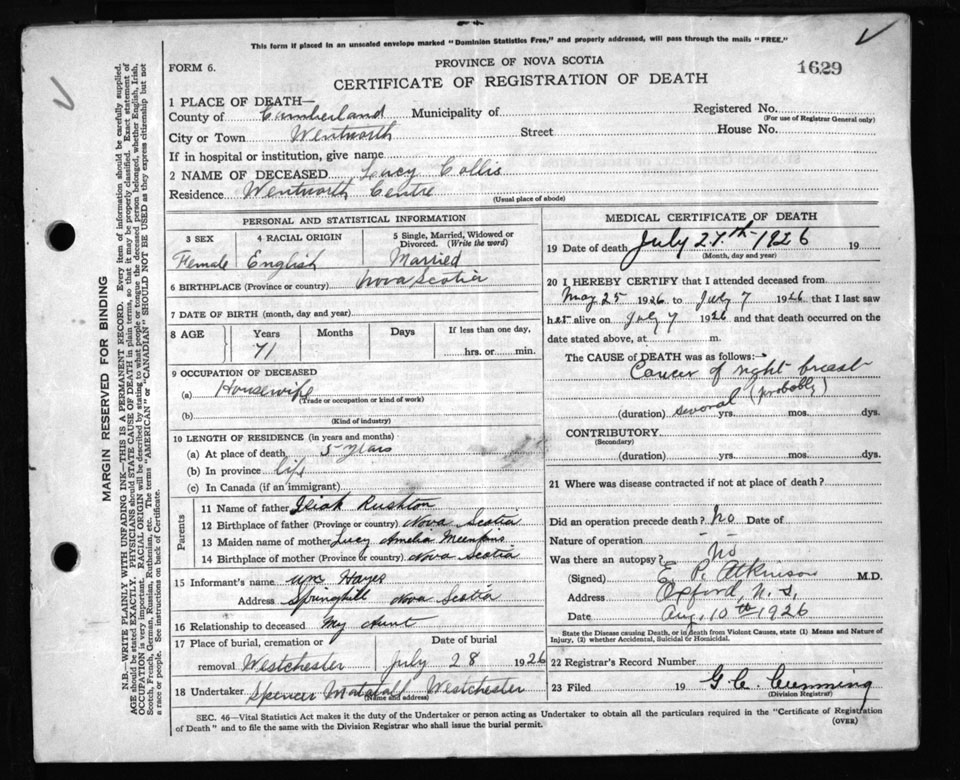 This form if placed in an unsealed envelope marked "Dominion Statistics Free," and properly addressed, will pass through the mails "FREE."
FORM 6.
PROVINCE OF NOVA SCOTIA
1629
CERTIFICATE OF REGISTRATION OF DEATH
1 PLACE OF DEATH—
County of Cumberland Municipality of Registered No.
(For use of Registrar General only)
City or Town Wentworth Street House No.
If in hospital or institution, give name
2 NAME OF DECEASED Lucy Collis
Residence Wentworth Centre
(Usual place of abode)
PERSONAL AND STATISTICAL INFORMATION
3 SEX 4 RACIAL ORIGIN 5 Single, Married, Widowed or Divorced. (Write the word)
Female English Married
6 BIRTHPLACE (Province or country) Nova Scotia
7 DATE OF BIRTH (month, day and year)
8 AGE Years Months Days If less than one day,
71 hrs. or min.
9 OCCUPATION OF DECEASED
(a) Housewife
(Trade or occupation or kind of work)
(b)
(Kind of industry)
10 LENGTH OF RESIDENCE (in years and months)
(a) At place of death 5 years
(b) In province life
(c) In Canada (if an immigrant)
Parents
11 Name of father Isiah Rushton
12 Birthplace of father (Province or country) Nova Scotia
13 Maiden name of mother Lucy Amelia
14 Birthplace of mother (Province or country) Nova Scotia
15 Informant's name Hayes
Address Springhill Nova Scotia
16 Relationship to deceased My Aunt
17 Place of burial, cremation or removal Westchester Date of burial July 28 1926
18 Undertaker Spencer Westchester
(Name and address)
MEDICAL CERTIFICATE OF DEATH
19 Date of death July 27th 1926 19
(Month, day and year)
20 I HEREBY CERTIFY that I attended deceased from
May 25 1926 to July 7 1926 that I last saw
her alive on July 7 1926 and that death occurred on the
date stated above, at m.
The CAUSE of DEATH was as follows:
Cancer of right breast
(probably)
(duration) several yrs. mos. dys.
CONTRIBUTORY
(Secondary)
(duration) yrs. mos. dys.
21 Where was disease contracted if not at place of death?
Did an operation precede death? No Date of
Nature of operation
Was there an autopsy? No
(Signed) E. P. Atkinson M.D.
Address Oxford, N. S.
Date Aug, 10th 1926
State the Disease causing Death, or in death from Violent Causes, state (1) Means and Nature of
Injury, (2) whether Accidental, Suicidal or Homicidal.
22 Registrar's Record Number
23 Filed 19 G. C. Cumming
(Division Registrar)
SEC. 46—Vital Statistics Act makes it the duty of the Undertaker or person acting as Undertaker to obtain all the particulars required in the "Certificate of Registration
of Death" and to file the same with the Division Registrar who shall issue the burial permit.
(OVER)
MARGIN RESERVED FOR BINDING
N.B.—WRITE PLAINLY WITH UNFADING INK—THIS IS A PERMANENT RECORD. Every item of information should be carefully supplied.
AGE should be stated EXACTLY. PHYSICIANS should STATE CAUSE OF DEATH in plain terms, so that it may be properly classified. Exact statement of
OCCUPATION is very important. RACIAL ORIGIN will be described by stating to what people or tongue the deceased person belonged, whether English, Irish,
Scotch, French, German, Russian, Ruthenian, etc. The terms "AMERICAN" or "CANADIAN" SHOULD NOT BE USED as they express citizenship but not
a race or people. See instructions on back of Certificate.